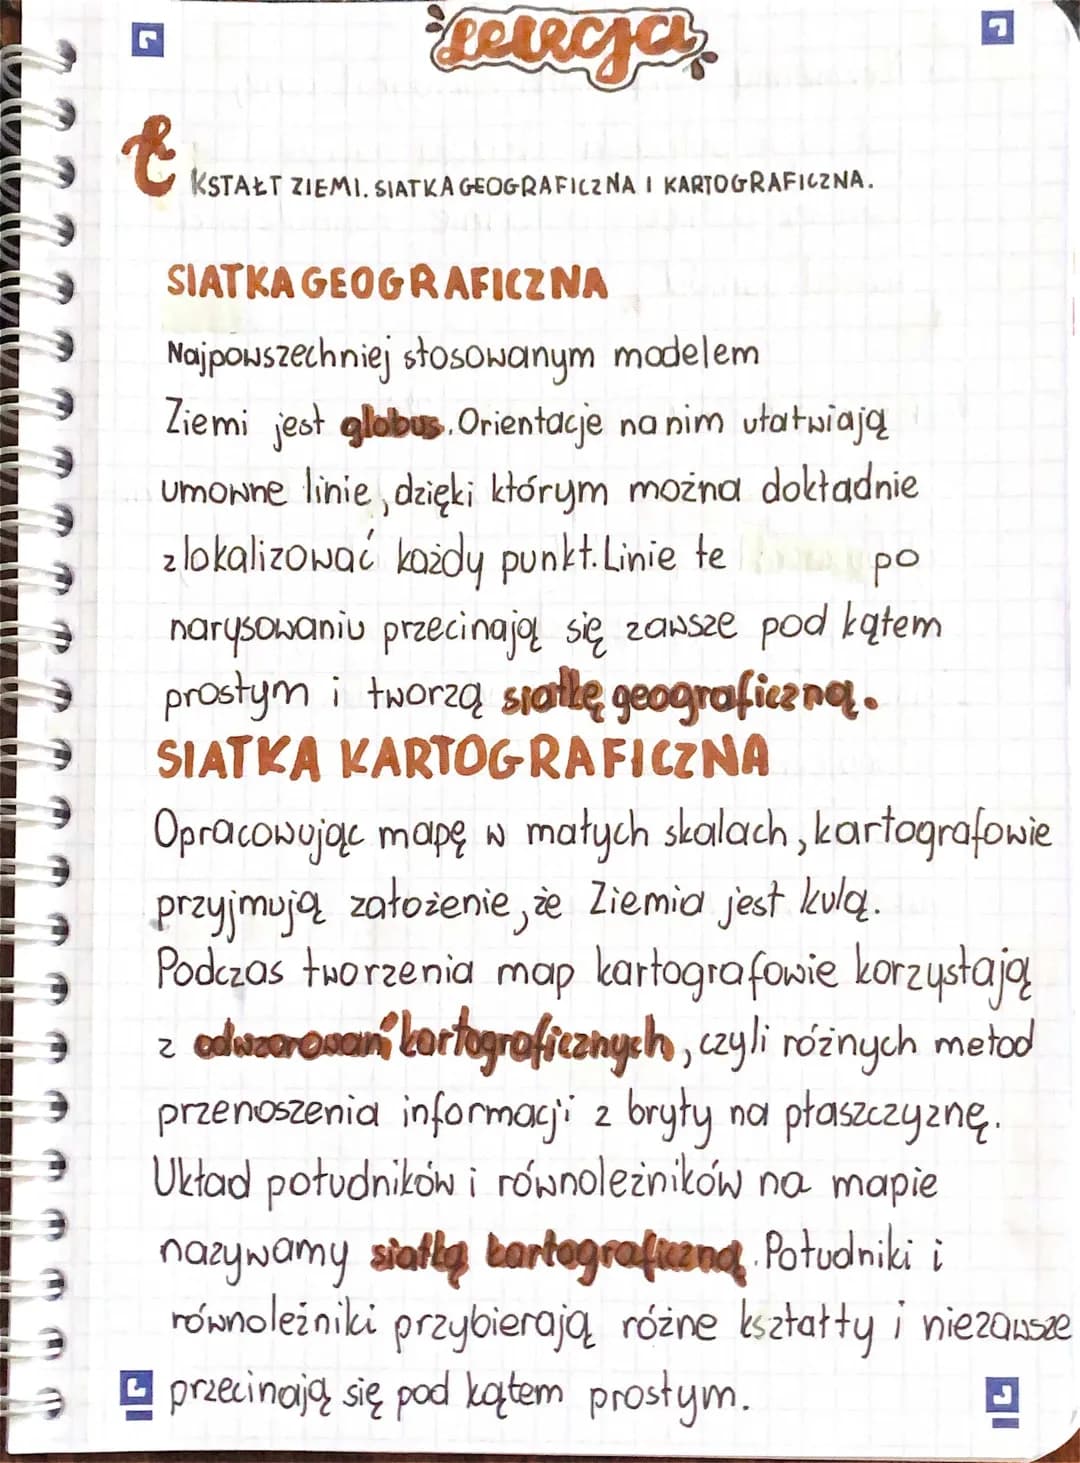 Lekcja
t
KSTAŁT ZIEMI. SIATKA GEOGRAFICZNA I KARTOGRAFICZNA.
SIATKA GEOGRAFICZNA
Najpowszechniej stosowanym modelem
Ziemi jest globus. Orientacje na nim ułatwiają
umowne linie, dzięki którym można dokładnie
zlokalizować każdy punkt. Linie te po
narysowaniu przecinają się zawsze pod kątem
prostym i tworzą siatkę geograficzną.
SIATKA KARTOGRAFICZNA
Opracowując mapę w małych skalach, kartografowie
przyjmują założenie, że Ziemia jest kulą.
Podczas tworzenia map kartografowie korzystają
z odwzorowań kartograficznych, czyli różnych metod
przenoszenia informacji z bryły na płaszczyznę.
Układ południków i równoleżników na mapie
nazywamy siatką kartograficzną. Południki i
równoleżniki przybierają różne kształty i niezawsze
przecinają się pod kątem prostym.